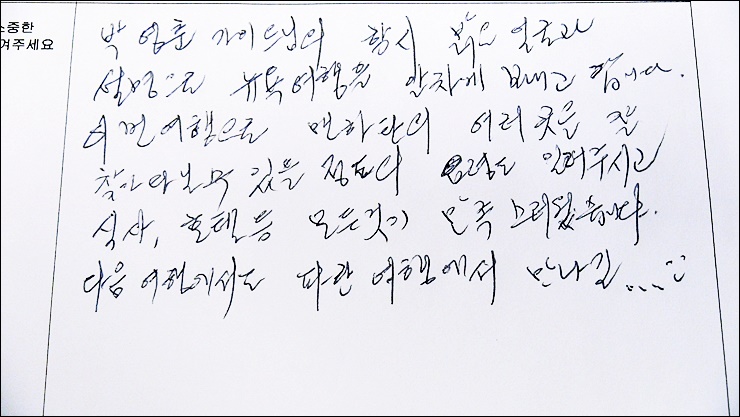 소중한
여주세요
박영훈 가이드님의 항시 밝은 얼굴과
설명으로 뉴욕여행을 알차게 보내고 갑니다.
이번 여행으로 맨하탄의 여러 곳을 잘
찾아다닐 수 있을 정도의 요령도 알려주시고
식사, 호텔등 모든것이 만족스러웠습니다.
다음 여행에서도 파란 여행에서 만나길....